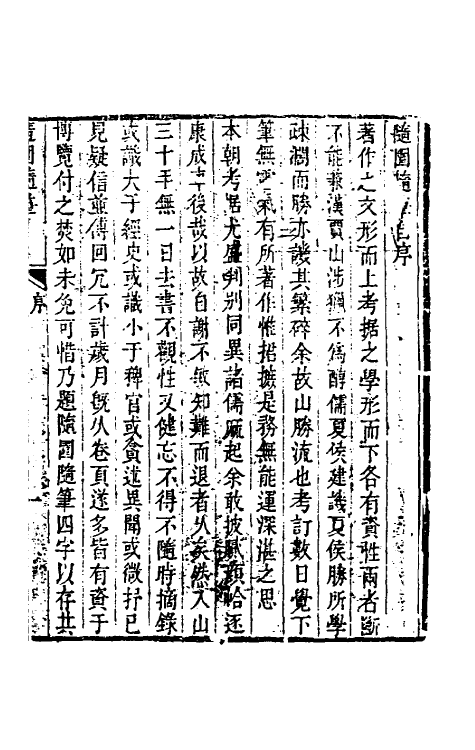 隨園隨筆自序
著作之文形而上考据之學形而下各有資性兩者斷
不能兼漢賈山涉獵不爲醇儒夏侯建譏夏侯勝所學
疎濶而勝亦譏其繁碎余故山勝流也考訂數日覺下
筆無靈氣有所著作惟捃摭是務無能運深湛之思
本朝考据尤盛判别同異諸儒麻起余敢披膩顔帢逐
康成車後哉以故自謝不敏知難而退者久矣然入山
三十年無一日去書不觀性又健忘不得不隨時摘錄
或識大于經史或識小于稗官或貪述異聞或微抒已
見疑信並傳回冗不計歲月旣久卷頁遂多皆有資于
博覽付之焚如未免可惜乃題隨園隨筆四字以存其
隨園隨筆
序
一